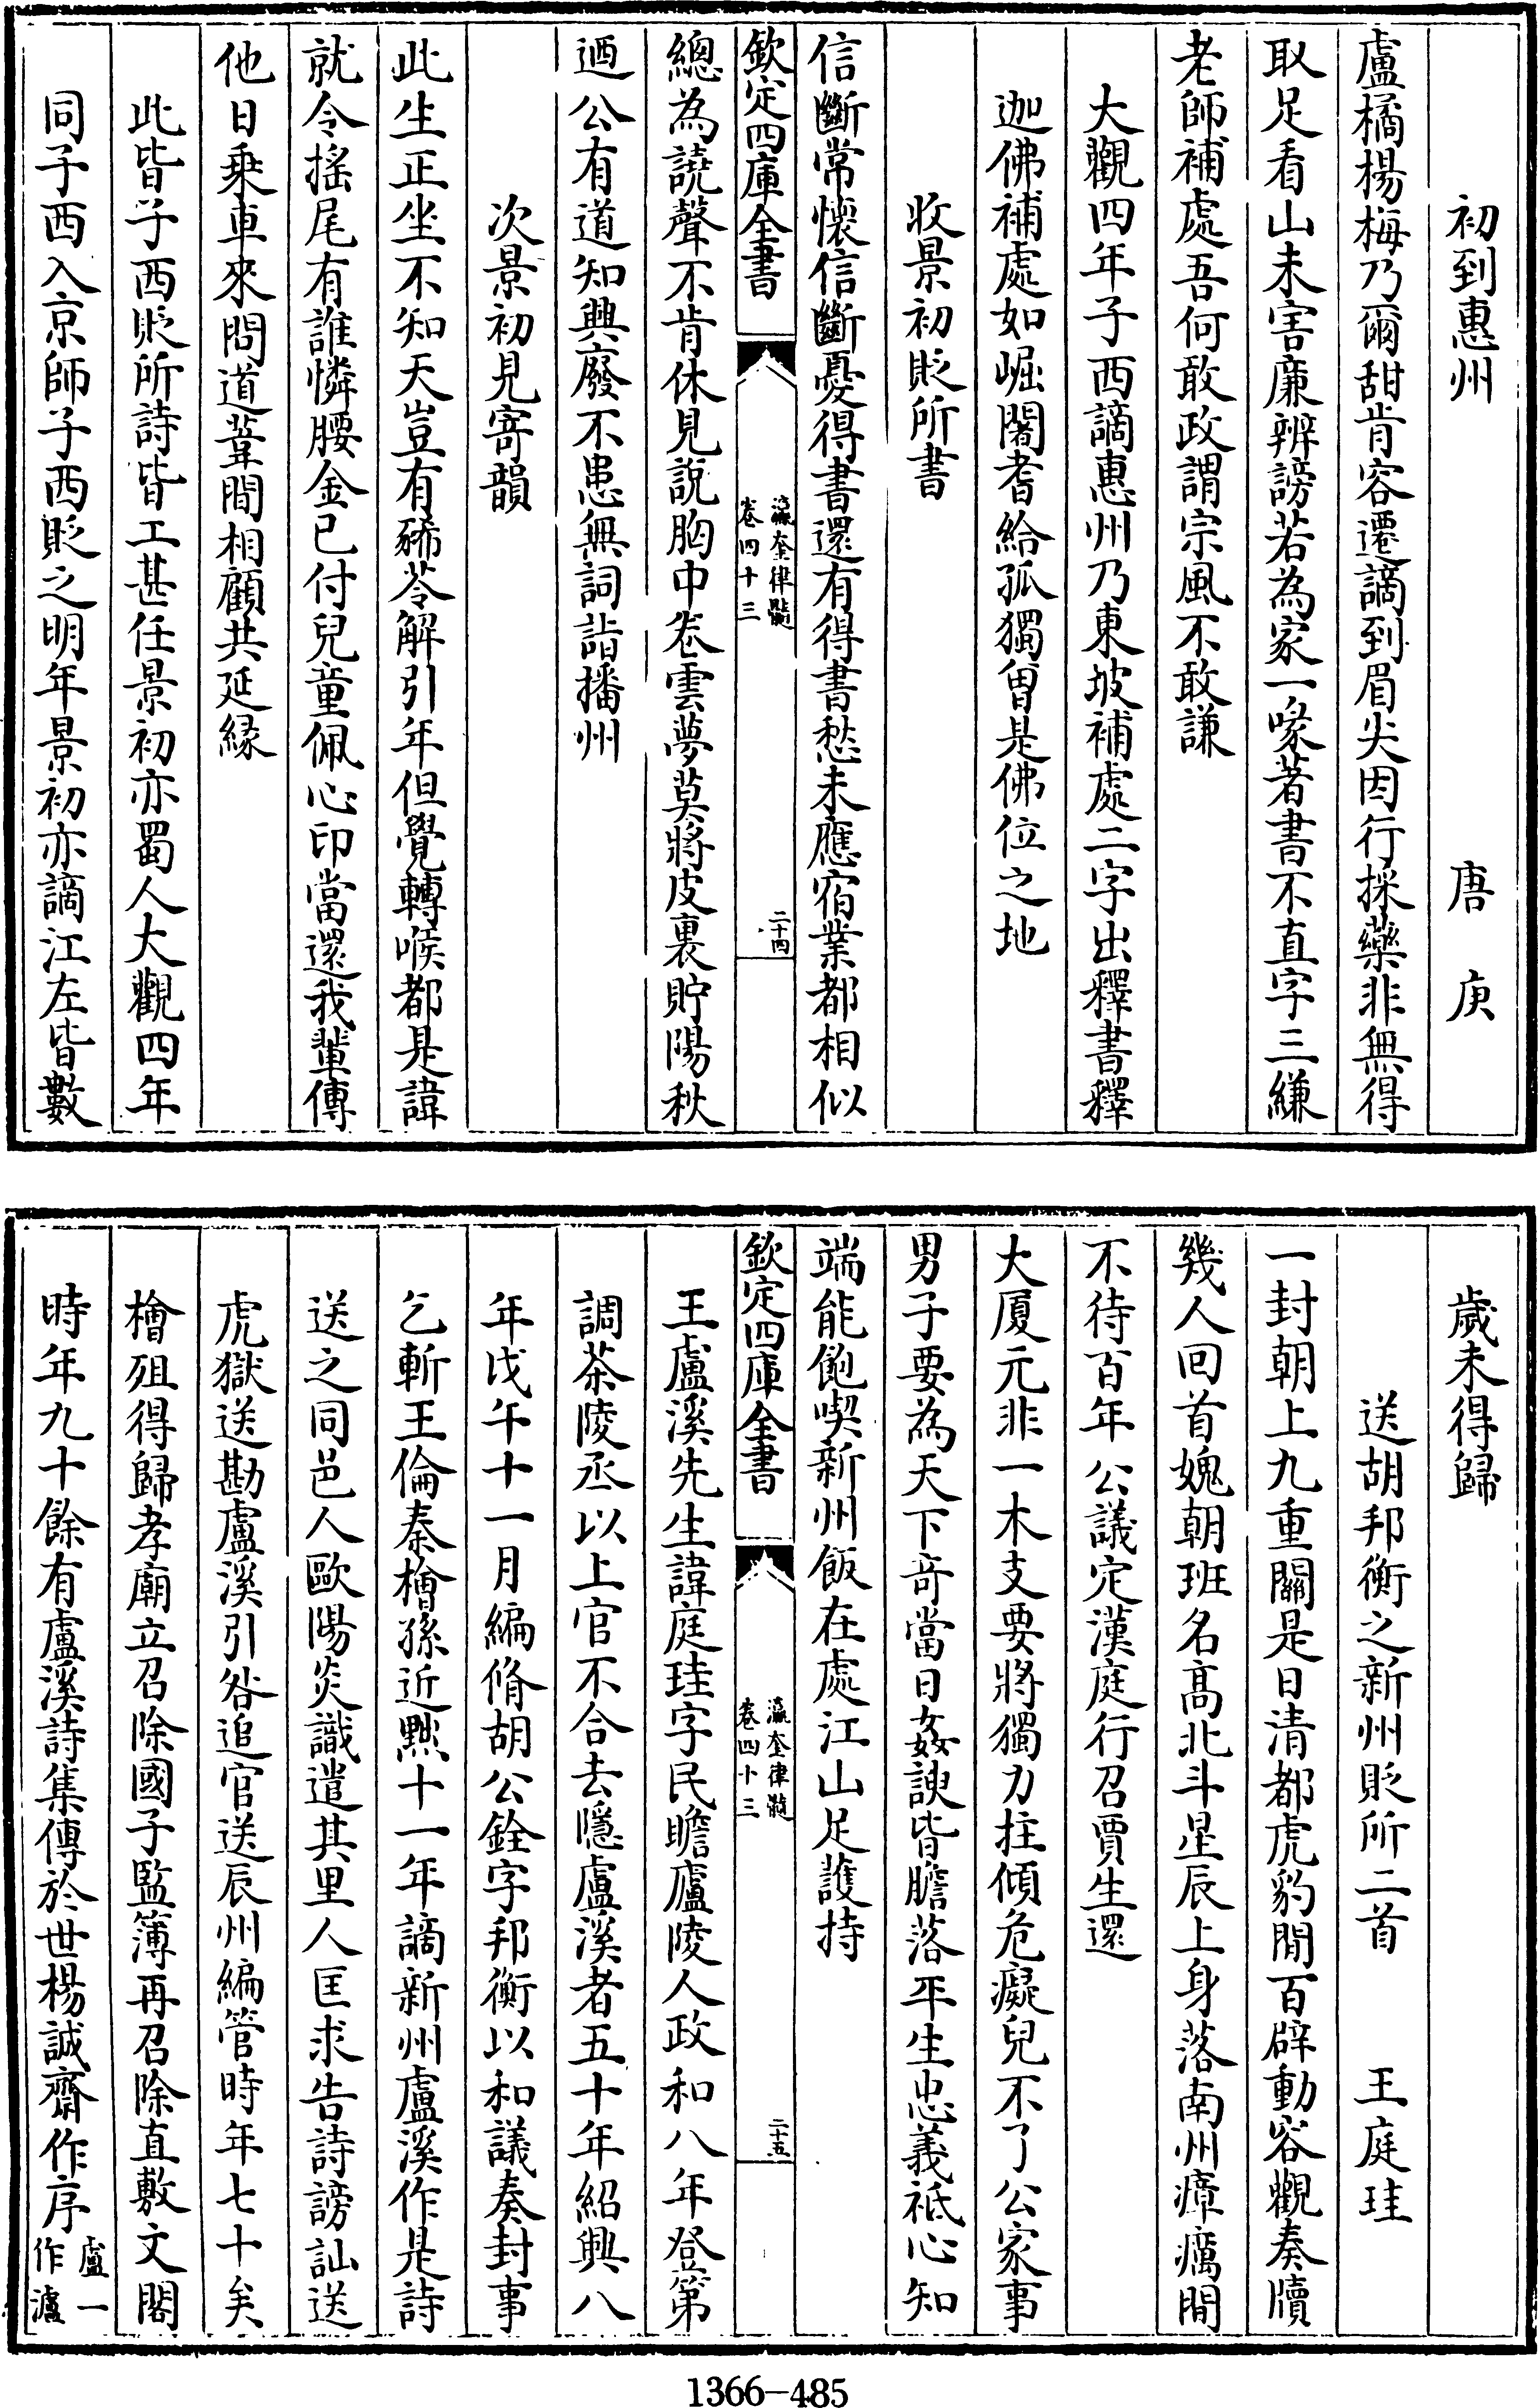 初到惠州　唐　庚
盧橘楊梅乃爾甜肯容遷謫到眉尖因行採藥非無得
取足看山未害廉辨謗若為家一喙著書不直字三縑
老師補處吾何敢政謂宗風不敢謙
大觀四年子西謫惠州乃東坡補處二字出釋書釋
迦佛補處如崛闍耆給孤獨曾是佛位之地
收景初貶所書
信斷常懷信斷憂得書還有得書愁未應宿業都相似
欽定四庫全書　瀛奎律髓　卷四十三　二十四
總為譊聲不肯休見說胸中卷雲夢莫將皮裏貯陽秋
迺公有道知興廢不患無詞詣播州
次景初見寄韻
此生正坐不知天豈有豨苓解引年但覺轉喉都是諱
就令揺尾有誰憐腰金已付兒童佩心印當還我輩傳
他日乗車來問道葦間相顧共延縁
此皆子西貶所詩皆工甚任景初亦蜀人大觀四年
同子西入京師子西貶之明年景初亦謫江左皆數
歲未得歸
送胡邦衡之新州貶所二首　王庭珪
一封朝上九重關是日清都虎豹閒百辟動容觀奏牘
幾人回首媿朝班名髙北斗星辰上身落南州瘴癘間
不待百年公議定漢庭行召賈生還
大厦元非一木支要將獨力拄傾危癡兒不了公家事
男子要為天下竒當日姦諛皆膽落平生忠義祗心知
端能飽喫新州飯在處江山足護持
欽定四庫全書　瀛奎律髓　卷四十三　二十五
王盧溪先生諱庭珪字民瞻廬陵人政和八年登第
調茶陵丞以上官不合去隱盧溪者五十年紹興八
年戊午十一月編脩胡公銓字邦衡以和議奏封事
乞斬王倫秦檜孫近㸃十一年謫新州盧溪作是詩
送之同邑人歐陽炎識遣其里人匡求告詩謗訕送
虎獄送勘盧溪引咎追官送辰州編管時年七十矣
檜殂得歸孝廟立召除國子監簿再召除直敷文閣
時年九十餘有盧溪詩集傳於世楊誠齋作序盧一作瀘
1366-485